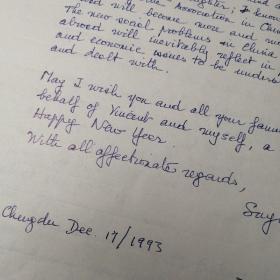 Association in China
will become more and
The new social problems in China
abroad will inevitably reflect in
and economic issues to be under
and dealt with.
May I wish you and all your fam
behalf of Vincent and myself, a
Happy New Year.
With all affectionate regards,
Chengdu Dec. 17/1993